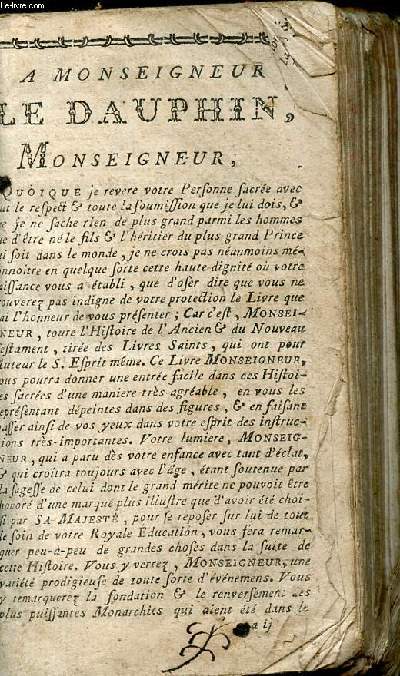 A MONSEIGNEUR
LE DAUPHIN,
MONSEIGNEUR,
QUOIQUE je revere votre Personne sacrée avec
le respect & toute la soumission que je lui dois, &
je ne sache rien de plus grand parmi les hommes
d'être né le fils & l'héritier du plus grand Prince
soit dans le monde, je ne crois pas néanmoins mé-
onnoître en quelque sorte cette haute dignité où votre
aissance vous a établi, que d'oser dire que vous ne
ouverez pas indigne de votre protection le Livre que
ai l'honneur de vous présenter ; Car c'est, MONSEI-
NEUR, toute l'Histoire de l'Ancien & du Nouveau
estament, tirée des Livres Saints, qui ont pour
uteur le S. Esprit même. Ce Livre MONSEIGNEUR,
ous pourra donner une entrée facile dans ces Histoi-
es sacrées d'une maniere très-agréable, en vous les
eprésentant dépeintes dans des figures, & en faisant
asser ainsi de vos yeux dans votre esprit des instruc-
ions très-importantes. Votre lumiere, MONSEIG-
NEUR, qui a paru dès votre enfance avec tant d'éclat,
& qui croîtra toujours avec l'âge, étant soutenue par
la sagesse de celui dont le grand mérite ne pouvoit être
honoré d'une marque plus illustre que d'avoir été choi-
si par SA MAJESTÉ, pour se reposer sur lui de tout
le soin de votre Royale Education, vous fera remar-
quer peu-à-peu de grandes choses dans la suite de
cette Histoire. Vous y verrez, MONSEIGNEUR, une
variété prodigieuse de toute sorte d'événemens. Vous
y remarquerez la fondation & le renversement des
plus puissantes Monarchies qui aient été dans le
a ij